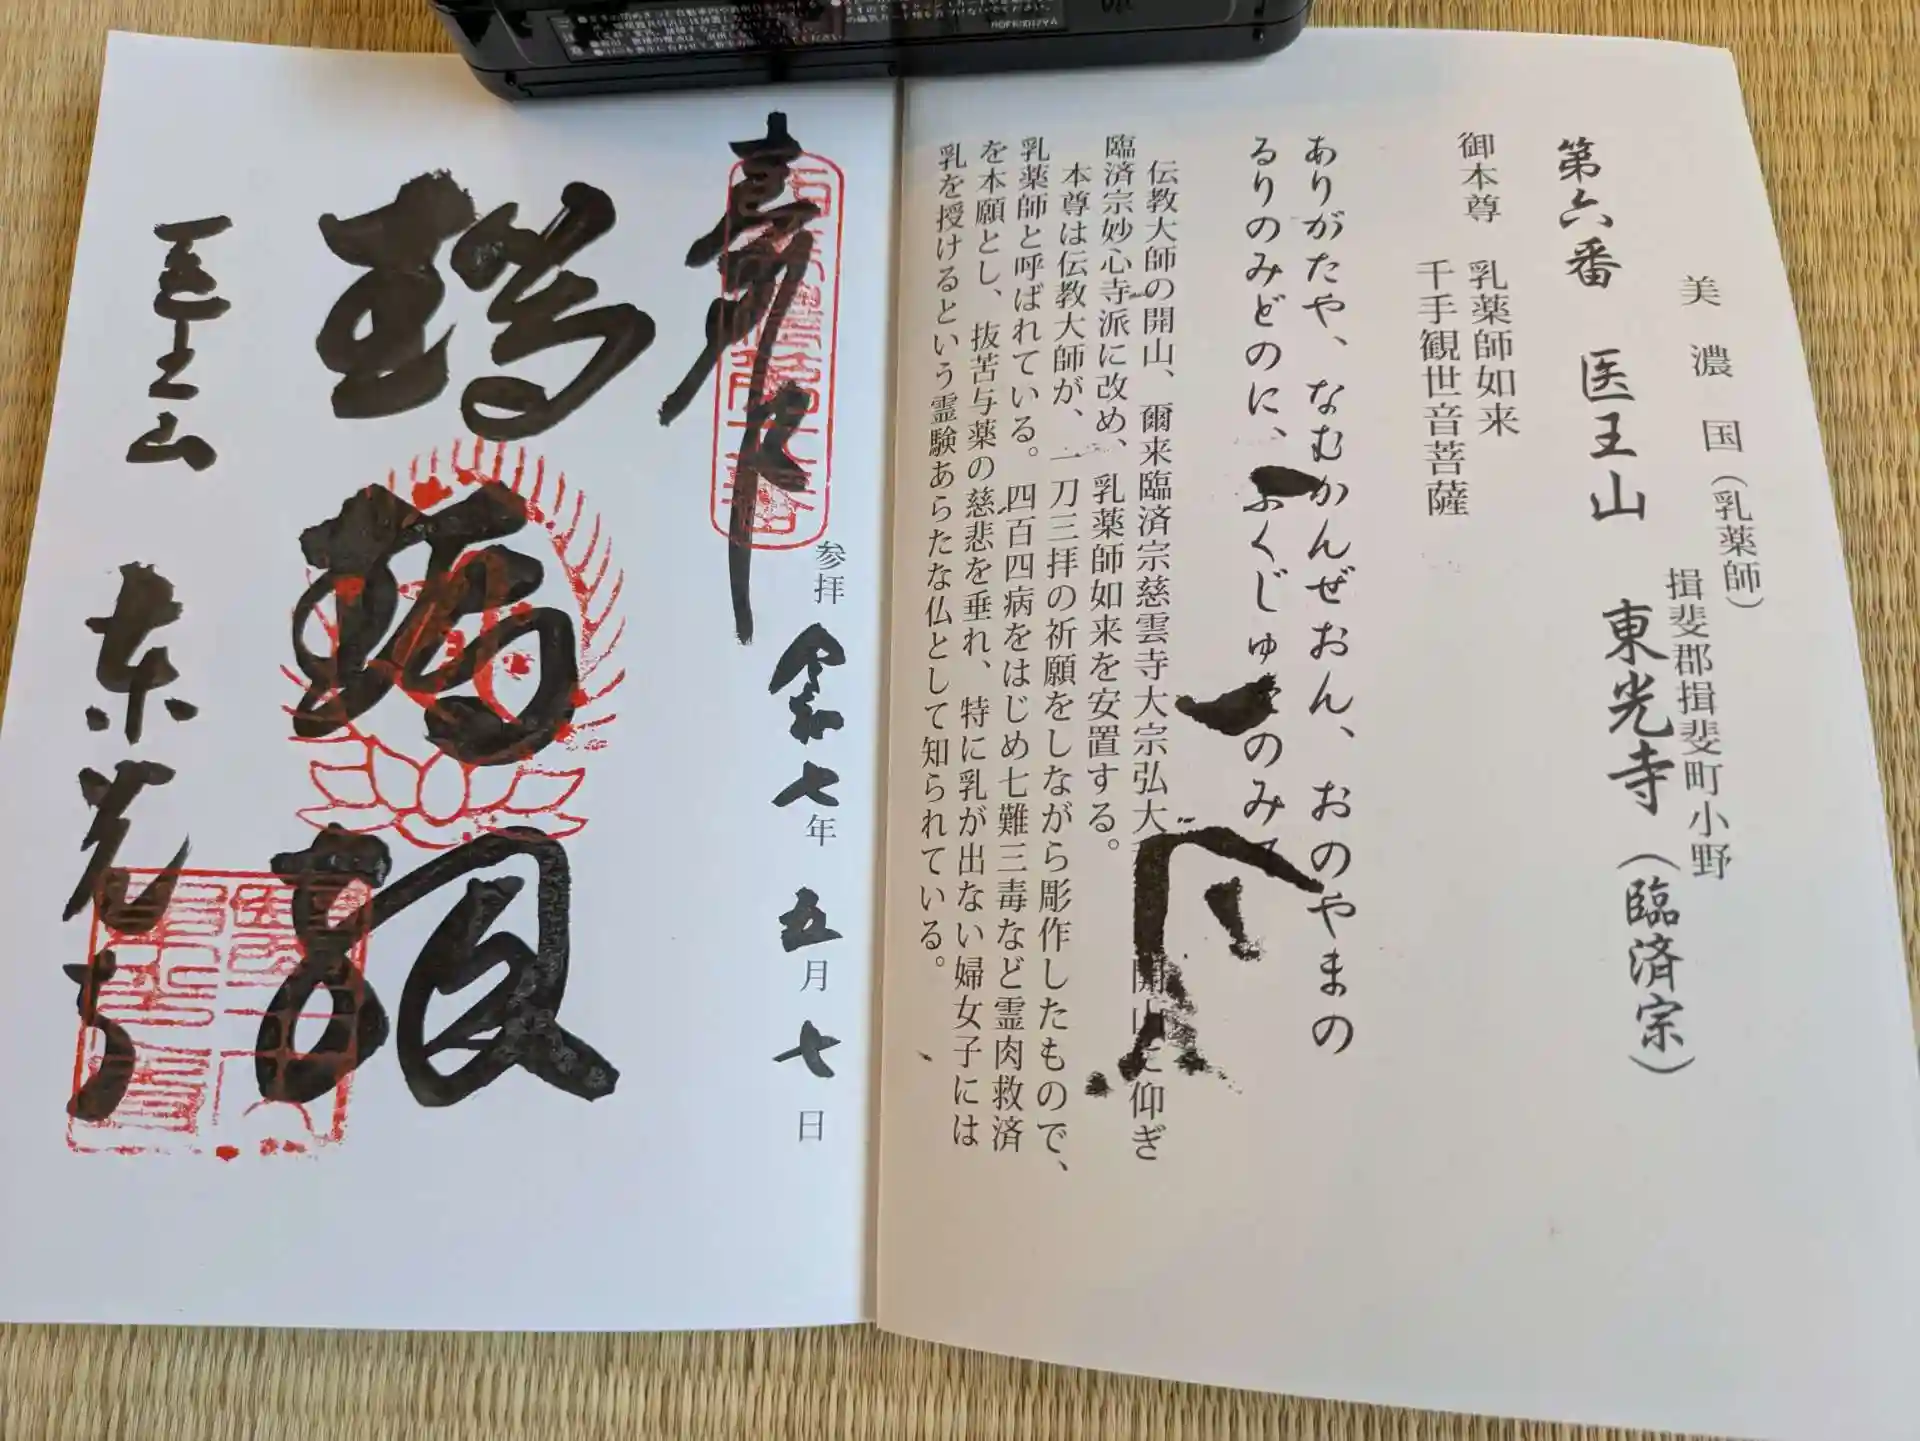 美濃国(乳薬師)
揖斐郡揖斐町小野
第六番 医王山 東光寺(臨済宗)
御本尊 乳薬師如来
千手観世音菩薩
ありがたや、なむかんぜおん、おのやまの
るりのみどのに、ふくじゅ のみ
伝教大師の開山、爾来臨済宗慈雲寺大宗弘大 開山に仰ぎ
臨済宗妙心寺派に改め、乳薬師如来を安置する。
本尊は伝教大師が、一刀三拝の祈願をしながら彫作したもので、
乳薬師と呼ばれている。四百四病をはじめ七難三毒など霊肉救済
を本願とし、抜苦与薬の慈悲を垂れ、特に乳が出ない婦女子には
乳を授けるという霊験あらたな仏として知られている。
参拝 令和七年 五月 七日
奉拝
瑠璃殿
医王山 東光寺